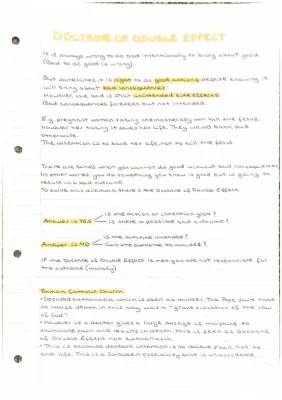 DOCTRINE OF DOUBLE EFFECT
It is always wrong to do bad intentionally to bring about good
(Bad to do good is wrong)
But sometimes it is right to do good actions despite knowing it
will bring about bad consequences
However, the bad is only unintended side effects
Bad consequences foreseen but not intended.
E.g. pregnant woman taking chemotherapy can kill the fetus,
however her taking it saves her life. They would both die
otherwise.
The intention is to save her life, not to kill the fetus
There are times when you cannot do good without bad consequences
In other words, you do something you know is good but is going to
result in a bad outcome
To solve this dilemma there's the Doctrine of Double Effect
Is the motive or intention good?
Answer is YES
Is there a possible bad outcome?
Is the outcome intended?
Answer is NO
Can the outcome be avoided?
If the Doctrine of Double Effect is met you are not responsible for
the outcome (morally)
Roman Catholic Church
• Opposed euthanasia which is seen as murder. The Pope said that
to cause death in this way was a "grave violation of the law
of God"
• However if a doctor gives a large dosage of morphine to
diminish pain and results in death, this is seen as Doctrine
of Double Effect, not euthanasia.
• This is because doctor's intention is to relieve pain, not to
end life. This is a foreseen possibility but is unavoidable